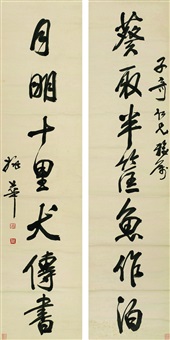 子奇仁兄雅属
葵取半筐魚作泊
月明十里犬傳書